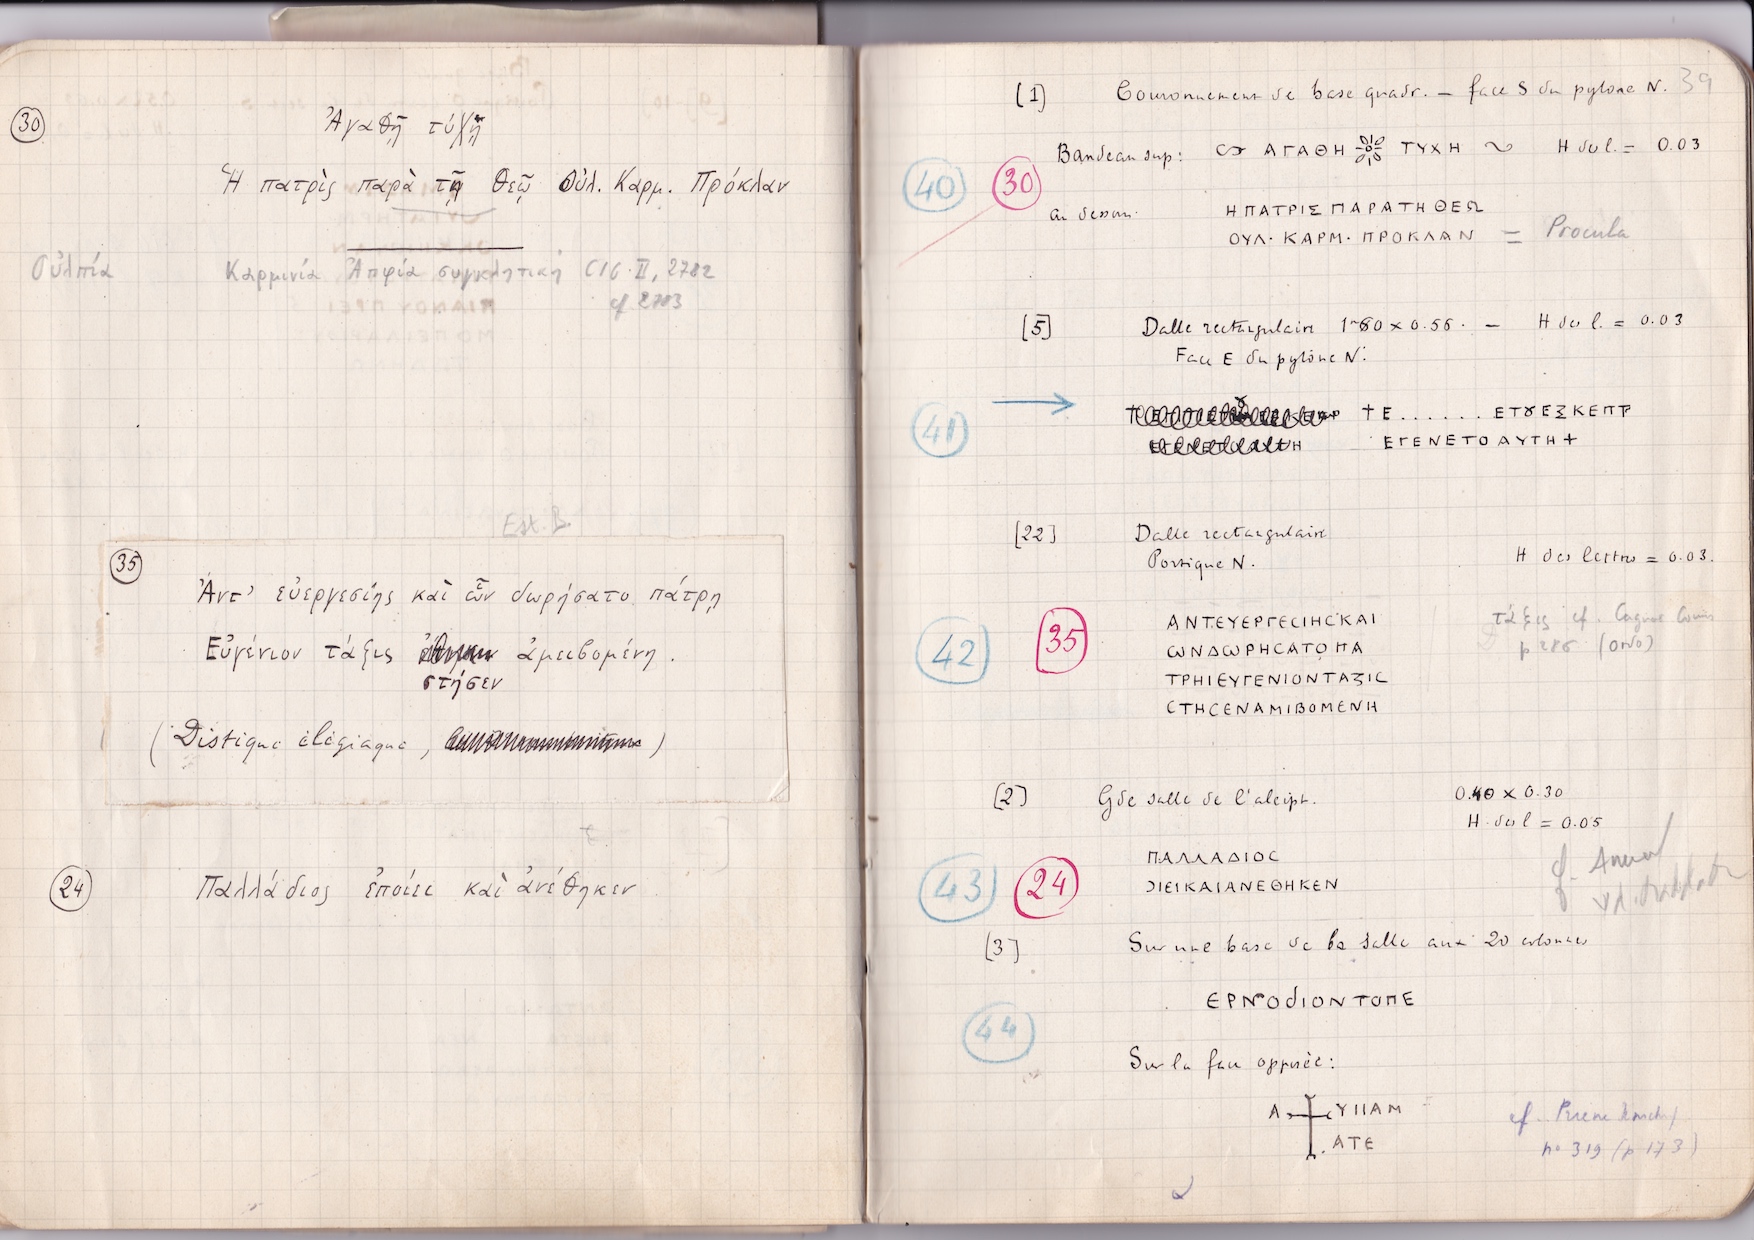 30
Ἀγαθῇ τύχῃ
Ἡ πατρὶς παρὰ τῇ θεῷ Οὐλ. Καρμ. Πρόκλαν
Οὐλπία Καρμινία Ἀπφία συγκλητική CIG. II, 2782
cf 2783
Est. B.
35
Ἀντ' εὐεργεσίης καὶ ὧν δωρήσατο πάτρῃ
Εὐγένιον τάξις ἀμειβομένη.
στήσεν
(Distique élégiaque, )
24
Παλλάδιος ἐποίει καὶ ἀνέθηκεν
[1] Couronnement de base quadr. – face S du pylone N. 39
Bandeau sup: ΑΓΑΘΗ ΤΥΧΗ H des l. = 0.03
40 30
au dessous: ΗΠΑΤΡΙΣΠΑΡΑΤΗΘΕΩ
ΟΥΛ· ΚΑΡΜ· ΠΡΟΚΛΑΝ = Procula
[5] Dalle rectangulaire 1m60 x 0.56. – H des l. = 0.03
Face E du pylône N.
41
†Ε......ΕΤȣΕΣΚΕΠΤ
ΕΓΕΝΕΤΟΑΥΤΗ+
[22] Dalle rectangulaire
Portique N. H des lettres = 0.03.
42 35
ΑΝΤΕΥΕΡΓΕCΙΗCΚΑΙ τάξις cf. Cagnat
ωΝΔωΡΗCΑΤΟΠΑ p 286 (ordo)
ΤΡΗΙΕΥΓΕΝΙΟΝΤΑΞΙC
CΤΗCΕΝΑΜΙΒΟΜΕΝΗ
[2] Gde salle de l'aleipt. 0.40 x 0.30
H. des l = 0.05
43 24
ΠΑΛΛΑΔΙΟΣ
ϽΙΕΙΚΑΙΑΝΕΘΗΚΕΝ cf.
[3] Sur une base de la salle aux 20 colonnes
ΕΡΝΟΔΙΟΝΤΟΠΕ
44
Sur la face opposée:
Α ΥΠΑΜ
.ΑΤΕ
cf.
no 319 (p 173)